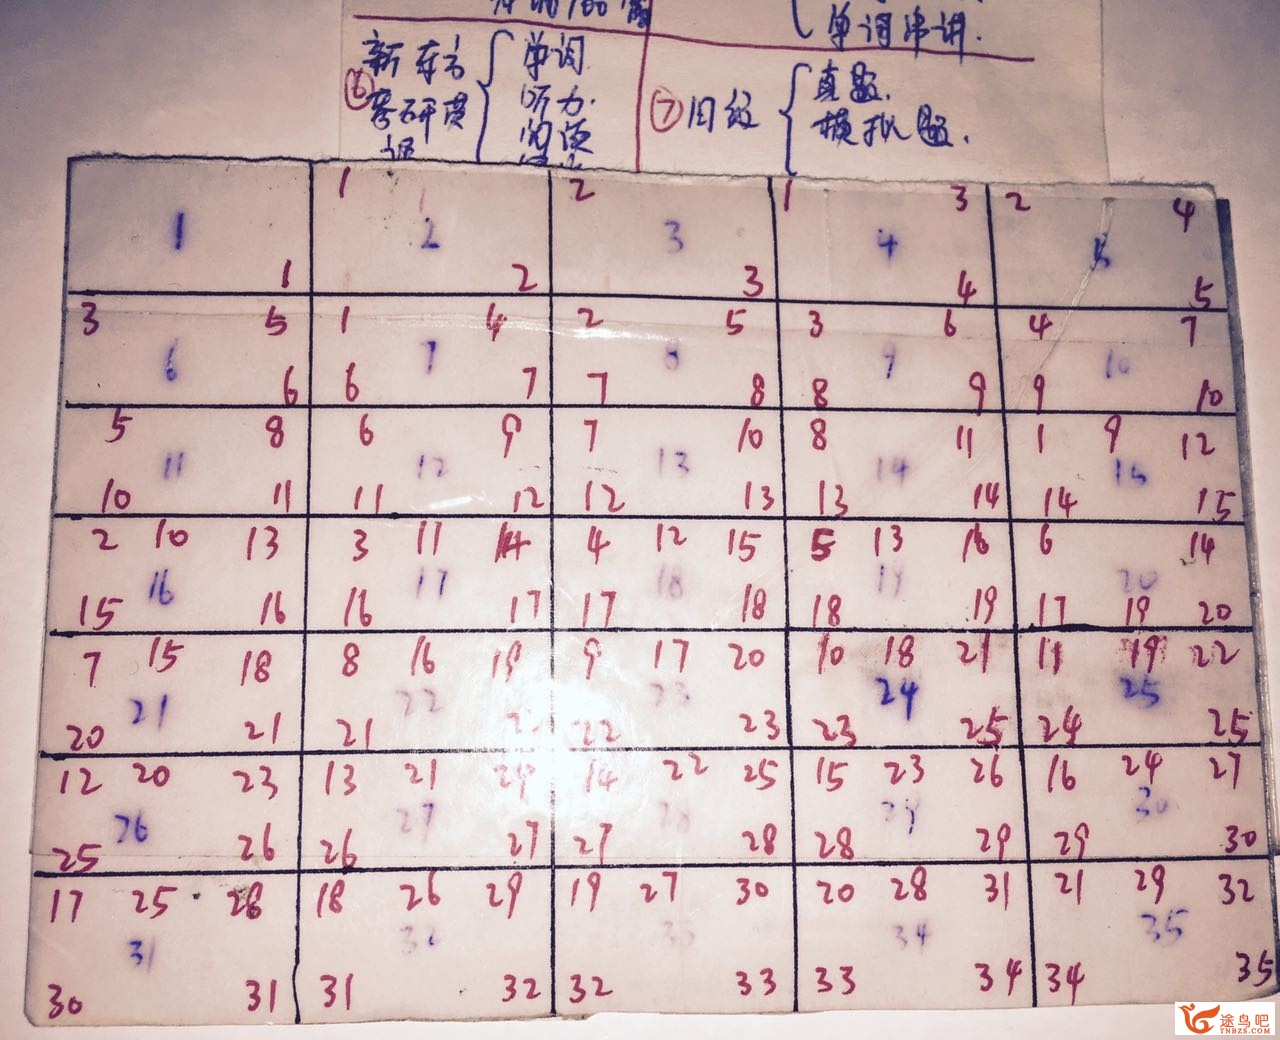 单词串讲.
⑥ 新东方
考研英
语
单词
听力.
阅读
⑦ 旧级
真题.
模拟题.
1 2 1 3 2 4
1 2 3 4 5
1 2 3 4 5
3 5 1 4 2 5 3 6 4 7
6 7 8 9 10
6 6 7 7 8 8 9 9 10
5 8 6 9 7 10 8 11 1 9 12
11 12 13 14 15
10 11 11 12 12 13 13 14 14 15
2 10 13 3 11 14 4 12 15 5 13 16 6 14
16 17 18 19 20
15 16 16 17 17 18 18 19 17 19 20
7 15 18 8 16 19 9 17 20 10 18 21 11 19 22
21 22 23 24 25
20 21 21 22 22 23 23 25 24 25
12 20 23 13 21 24 14 22 25 15 23 26 16 24 27
26 27 28 29 30
25 26 26 27 27 28 28 29 29 30
17 25 28 18 26 29 19 27 30 20 28 31 21 29 32
31 32 33 34 35
30 31 31 32 32 33 33 34 34 35
途鸟吧
TNBZS.COM